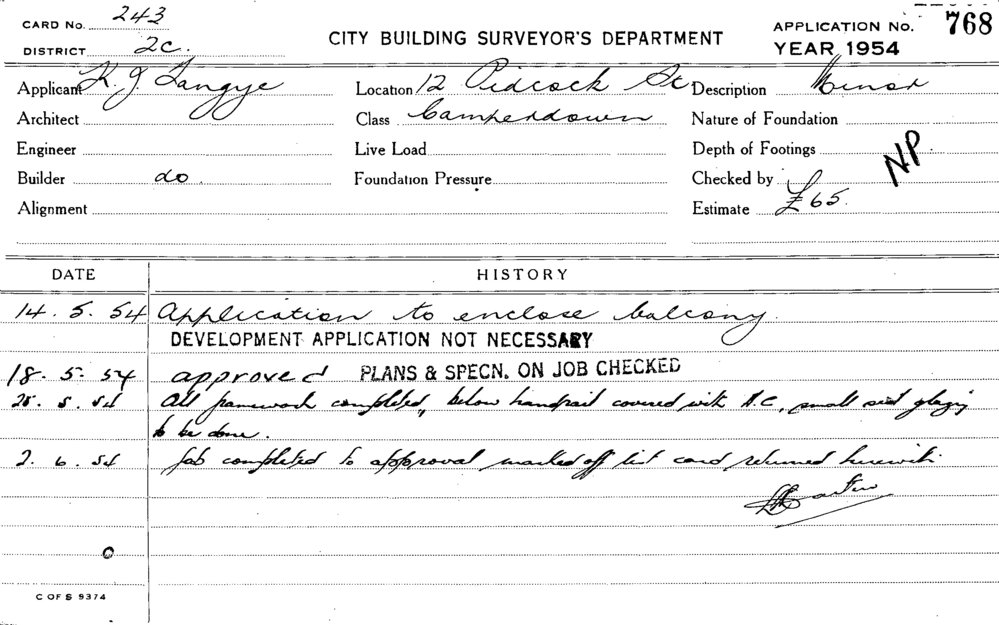 CARD No. 243
DISTRICT 2C.
CITY BUILDING SURVEYOR'S DEPARTMENT
APPLICATION No. 768
YEAR 1954
Applicant K. J. Tangye
Location 12 Pidcock St
Description Minor
Architect
Class Camperdown
Nature of Foundation
Engineer
Live Load
Depth of Footings
NP
Builder do.
Foundation Pressure
Checked by
Alignment
Estimate £65.
DATE HISTORY
14. 5. 54 Application to enclose balcony.
DEVELOPMENT APPLICATION NOT NECESSARY
18. 5. 54 approved PLANS & SPECN. ON JOB CHECKED
25. 5. 54 All framework completed, below handrail covered with A.C., small glazing
to be done.
2. 6. 54 Job completed to approval marked off list card returned herewith.
C OF S 9374